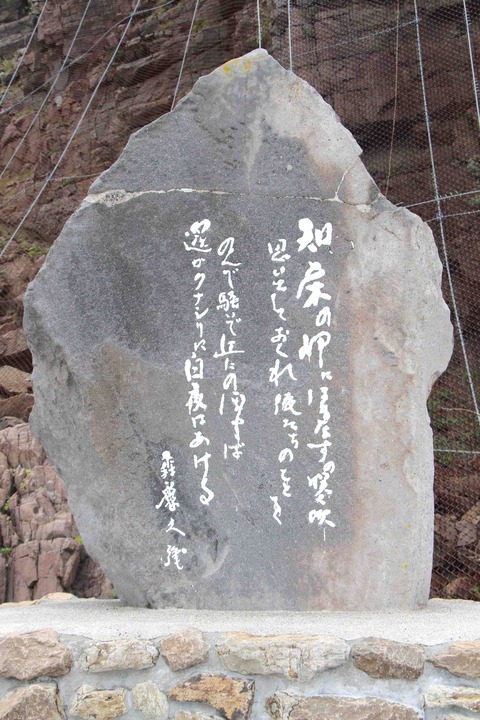 知床の岬にはまなすの咲く
思い出しておくれ俺たちのことを
のんで騒いで丘にのぼれば
遥かクナシリに白夜はあける
森繁久彌